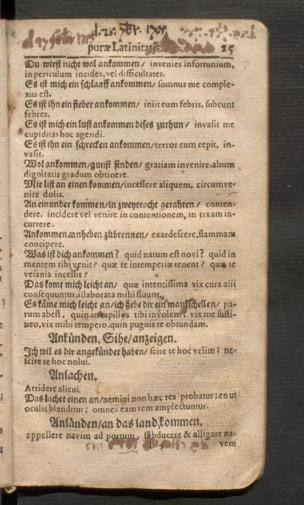 puræ Latinitatis. 25
Du wirst nicht wol ankommen / invenies infortunium,
in periculum incides, vel difficultates.
Es ist mich ein schlaaff ankommen / somnus me comple-
xus est.
Es ist ihn ein fieber ankommen / iniit eum febris, subeunt
febres.
Es ist mich ein lust ankommen dises zuthun / invasit me
cupiditas hoc agendi.
Es ist ihn ein schrecken ankommen / terror eum cepit, in-
vasit.
Wol ankommen / gunst finden / gratiam invenire, alium
dignitatis gradum obtinere.
Mit list an einen kommen / incessere aliquem, circumve-
nire dolis.
An einander kommen / in zweytracht gerahten / conten-
dere, incidere vel venire in contentionem, in rixam in-
currere.
Ankommen, anheben zübrennen / exardescere, flammam
concipere.
Was ist dich ankommen? quid natum est novi? quid in
mentem tibi venit? quæ te intemperiæ tenent? quæ te
vesania incessit?
Das komt mich leicht an / quæ intentissima vix cura alii
consequuntur, illaborata mihi fluunt.
Es käme mich leicht an / ich gebe dir ein maulschellen / pa-
rum abest, quin involem, vix me susti-
neo, vix mihi tempero, quin pugnis te obtundam.
Ankünden. Sihe / anzeigen.
Ich wil es dir angekündet haben / scite te hoc velim; ne-
scire te hoc nolui.
Anlachen.
Arridere alicui.
Das lachet einen an / nemini non hæc res probatur; en ut
oculis blanditur; omnes eam rem amplectuntur.
Anländen / an das land kommen.
appellere navim ad portum, subducere & alligare na-
vem